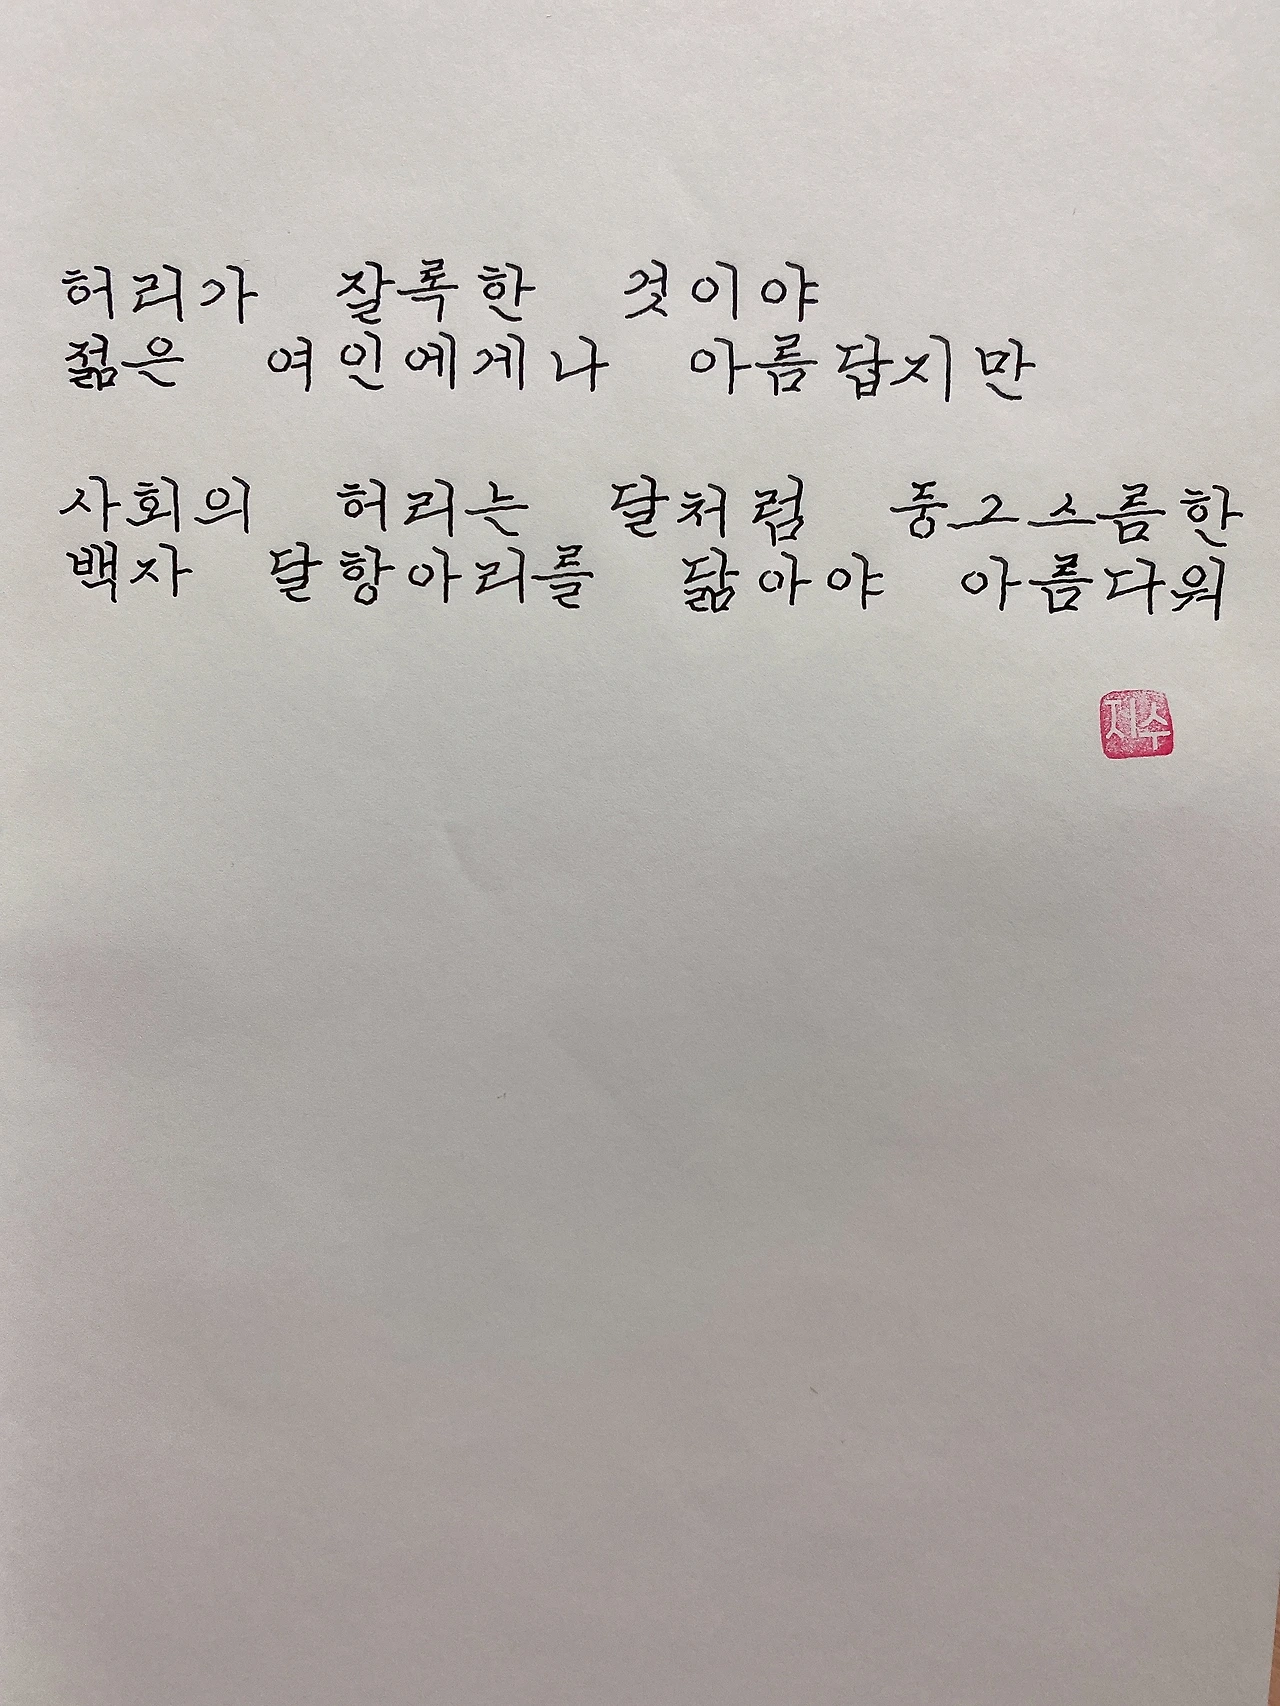 허리가 잘록한 것이야
젊은 여인에게나 아름답지만
사회의 허리는 달처럼 둥그스름한
백자 달항아리를 닮아야 아름다워